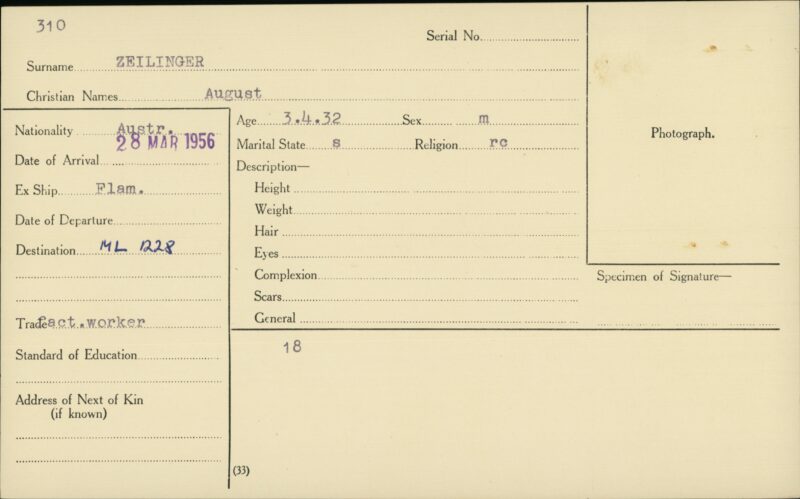 310
Serial No.
Surname ZEILINGER
Christian Names August
Nationality Austr.
28 MAR 1956
Date of Arrival
Ex Ship Flam.
Date of Departure
Destination ML 1228
Trade fact.worker
Standard of Education
Address of Next of Kin
(if known)
Age 3.4.32 Sex m
Marital State s Religion rc
Description—
Height
Weight
Hair
Eyes
Complexion
Scars
General
18
(33)
Photograph.
Specimen of Signature—